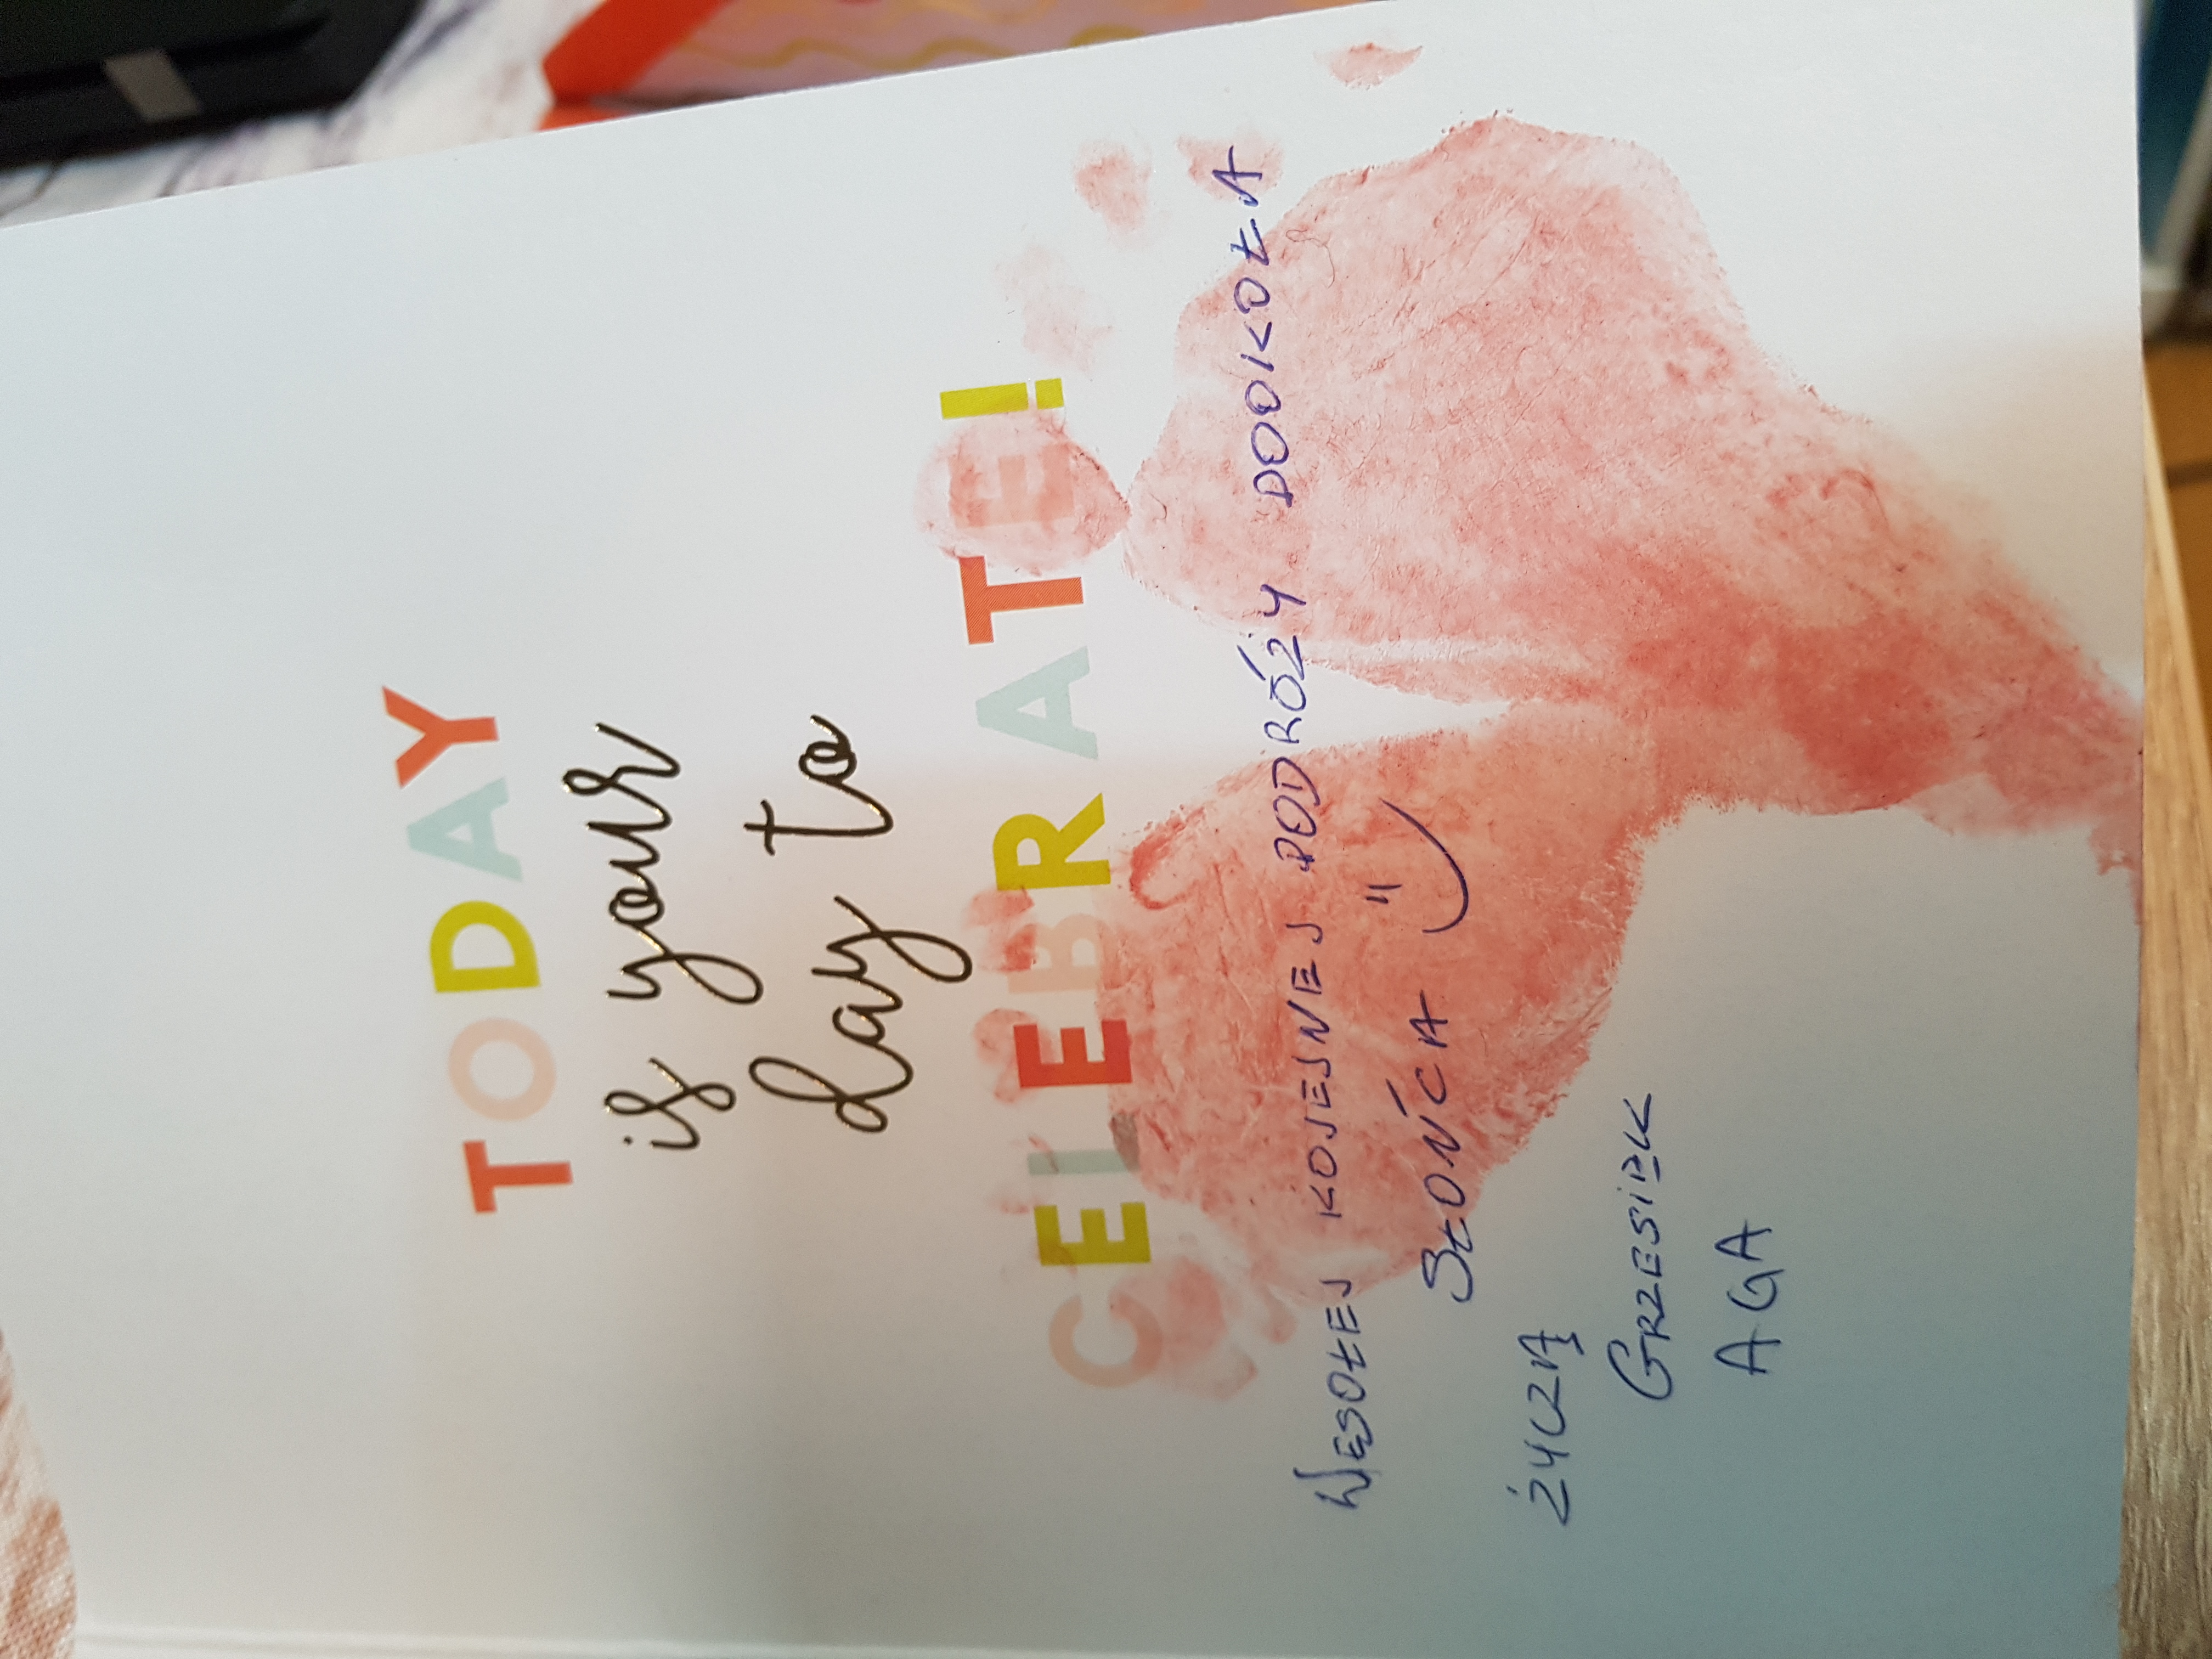 TODAY
is your
day to
CELEBRATE!
WESOŁEJ KOJESNEJ PODRÓŻY DOOKOŁA
SŁOŃCA
ŻYCZĄ
GRZESIEK
AGA